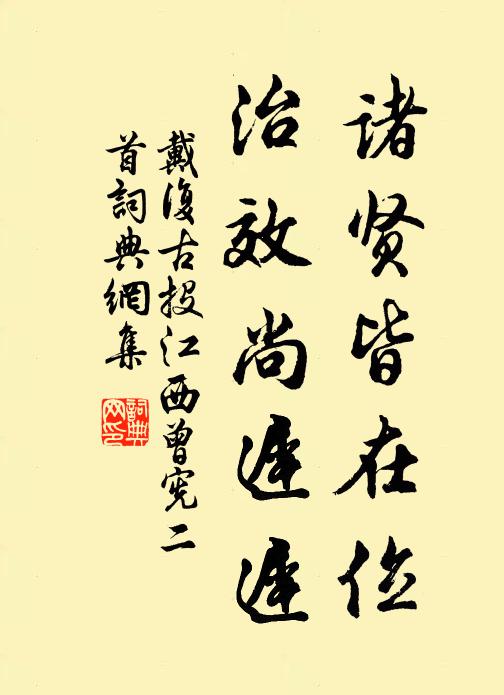 诸贤皆在位
治效尚遲遲
戴復古投江西曾宪二
首詞典網集
詞典
网印